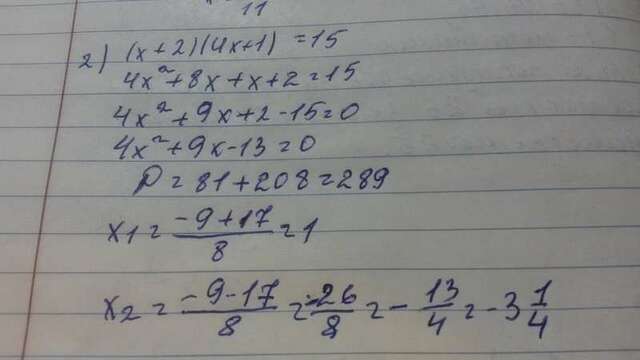 11
2) (x+2)(4x+1) =15
4x²+8x+x+2=15
4x²+9x+2-15=0
4x²+9x-13=0
D=81+208=289
x1 = (-9+17)/8 = 1
x2 = (-9-17)/8 = -26/8 = -13/4 = -3 1/4